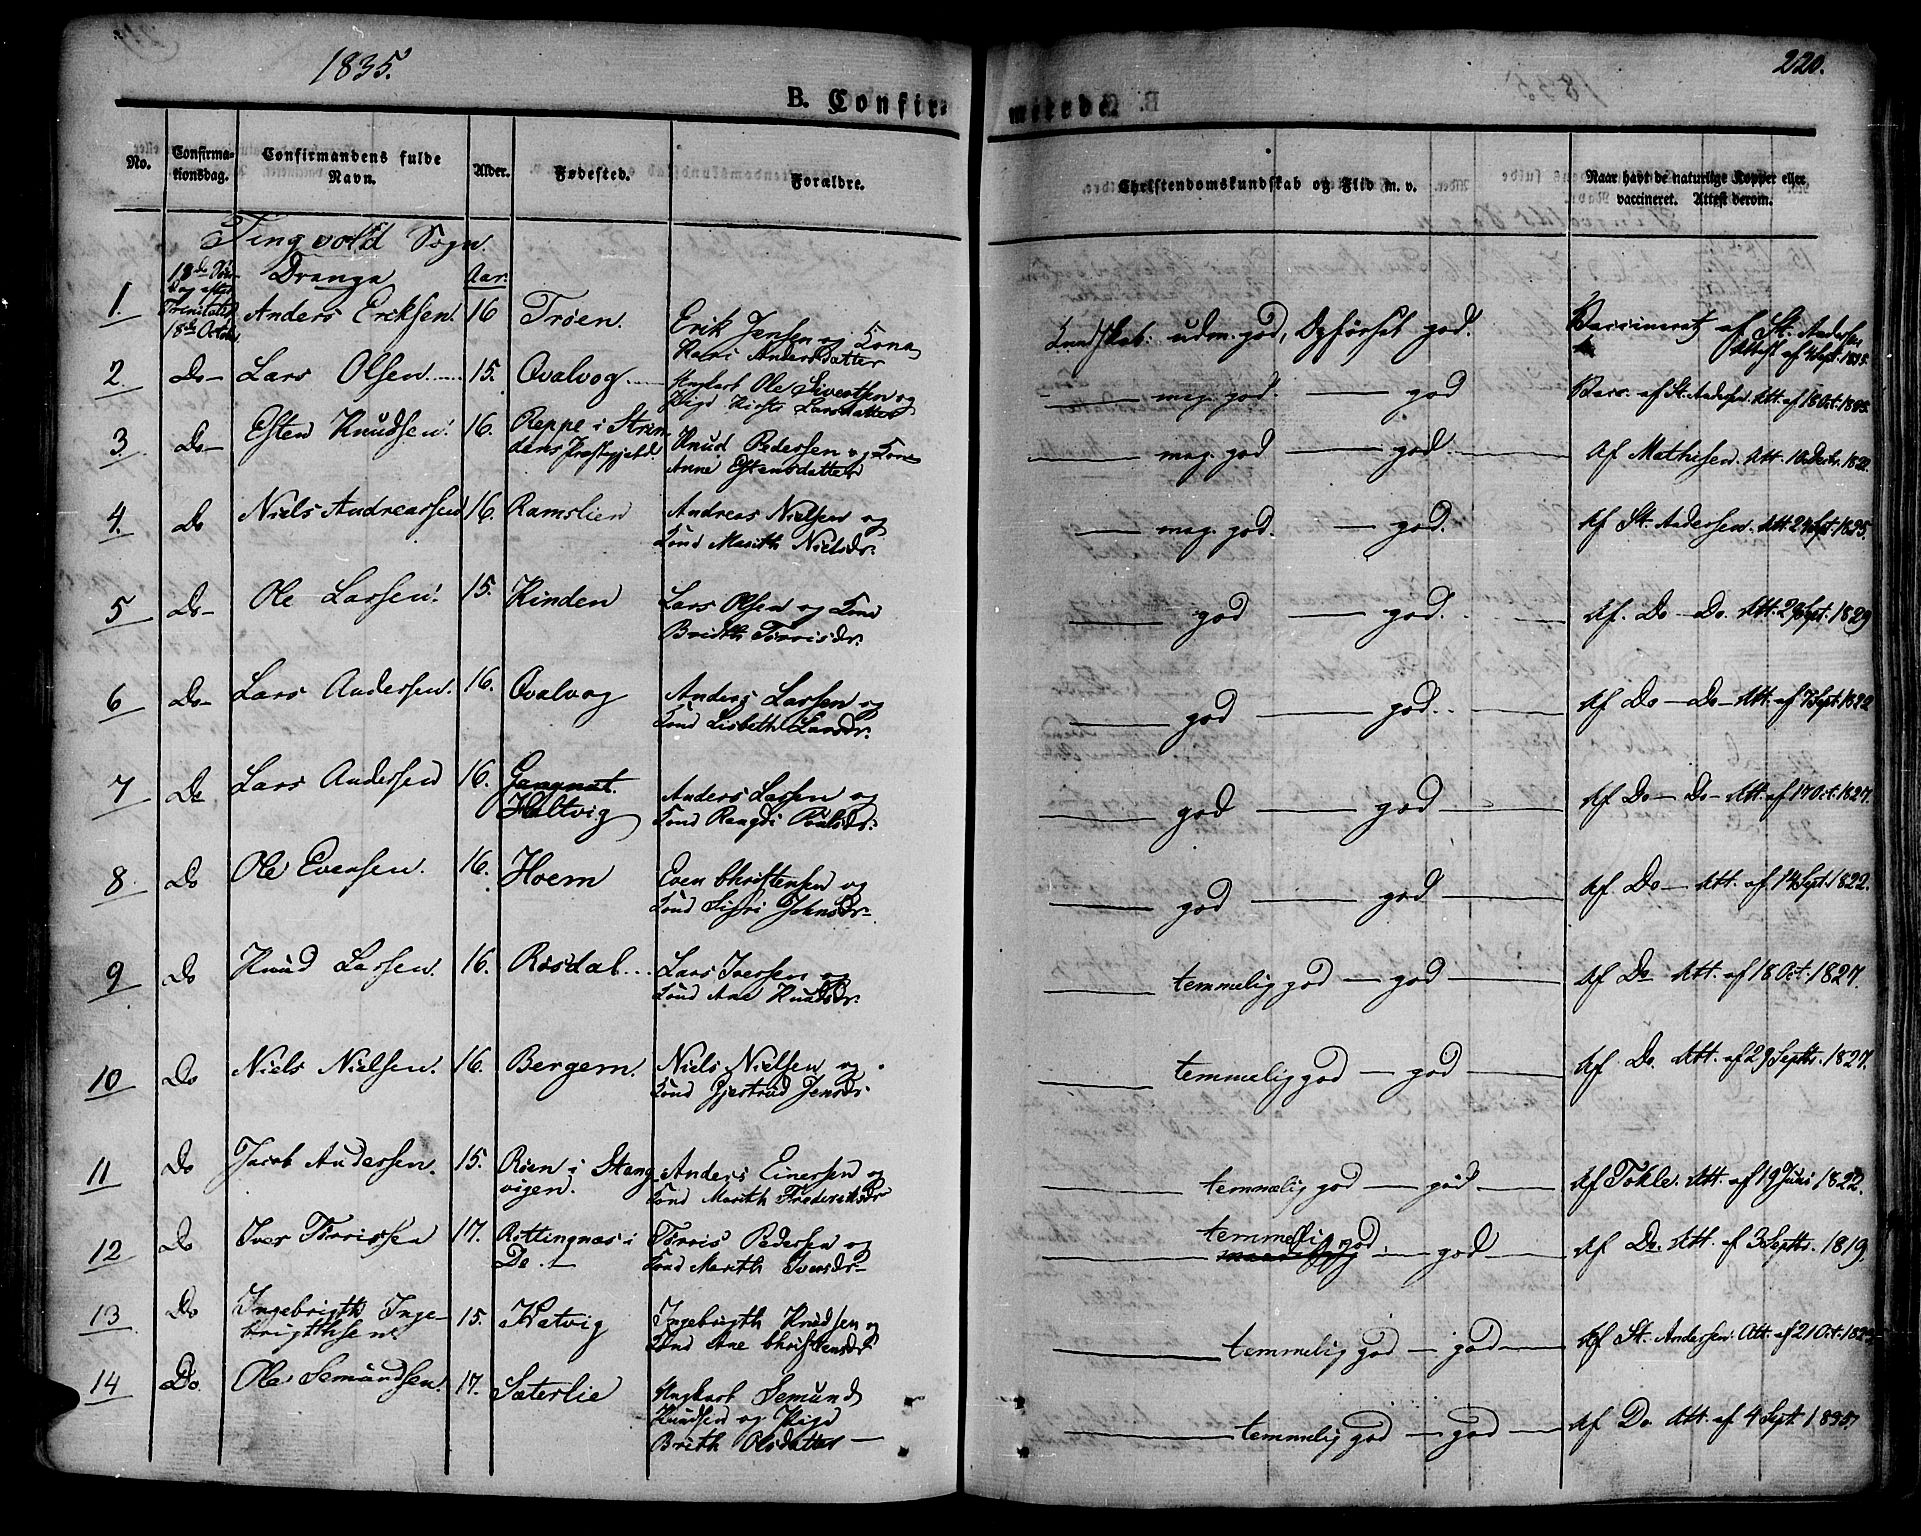 1835.
220.
B. Confirmerede.
No.
Confirmationsdag.
Confirmandens fulde Navn.
Alder.
Fødested.
Forældre.
Christendomskundskab og Flid m. v.
Naar havt de naturlige Kopper eller vaccineret. Attest derom.
Tingvold Sogn.
Drenge Aar:
1. 18de Søndag efter Trinitatis 18de Octob. Anders Eriksen. 16 Trøen. Erik Jensen og Kona Kari Andersdatter Kundskab: udm. god, Opførsel god. Vaccineret af St. Andersen Attest af 4 Sept. 1835.
2. Do— Lars Olsen 15. Qvalvog Ungkarl Ole Sivertsen og Pige Kirsti Larsdatter — meg. god. — god Vacc. af St. Andersen Att. af 18 Oct. 1835.
3. Do— Esten Knudsen 16. Reppe i Strindens Præstgjeld. Knud Pedersen og Kone Anne Estensdatter — meg. god — god. Af Mathisen. Att. 10 Decbr. 1822
4. Do Niels Andreassen 16. Ramslien Andreas Nielsen og Kond Marith Nielsdr. — meg. god. — god. Af St. Andersen. Att. 24 Sept. 1825.
5 Do— Ole Larsen. 15. Kinden Lars Olsen og Kond Brith Torrisdr. — god — god. Af. Do— Do. Att. 29 Sept. 1829
6 Do— Lars Andersen. 16. Qvalvog Anders Larsen og Kond Lisbeth Larsdr. — god — god. Af Do—Do— Att. af 7 Sept. 1822
7 Do Lars Andersen 16. Gangnat. Holtvig Anders Larsen og Kond Raagni Poulsdr. — god — god Af Do— Do— Att. af 17 Oct. 1827.
8 Do Ole Evensen. 16. Hoem Even Christensen og Kond Sigri Johnsdr. — god — god Af Do— Att. af 14 Sept. 1822.
9 Do Knud Larsen. 16. Røsdal Lars Iversen og Kond Ane Knudsdr. — temmelig god — god Af Do Att. af 18 Oct. 1827.
10 Do Niels Nielsen. 16. Bergem. Niels Nielsen og Kond Gjertrud Jensdr. — temmelig god — god Af Do. Att. af 29 Septbr. 1827.
11 Do Jacob Andersen. 15. Røen i Stangvigen. Anders Einersen og Kond Marith Frederiksdr — temmelig god — god Af Tokle. Att. af 19 Juni 1822.
12 Do Iver Torrissen 17. Røttingnæs i Do.— Torris Pedersen og Kond Marith Iversdr— — temmelig god — god Af Do. Att. af 3 Septbr. 1819.
13 Do Ingebrigth Ingebrigthsen 15. Hatvig Ingebrigth Knudsen og Kond Ane Christensdr — temmelig god — god Af St. Andersen. Att. af 21 Oct.
14 Do. Ole Semundsen. 17. Sæterlie Ungkarl Semund Knudsen og Pige Brith Olsdatter — temmelig god — god Af Do Att. af 4 Sept. 1835